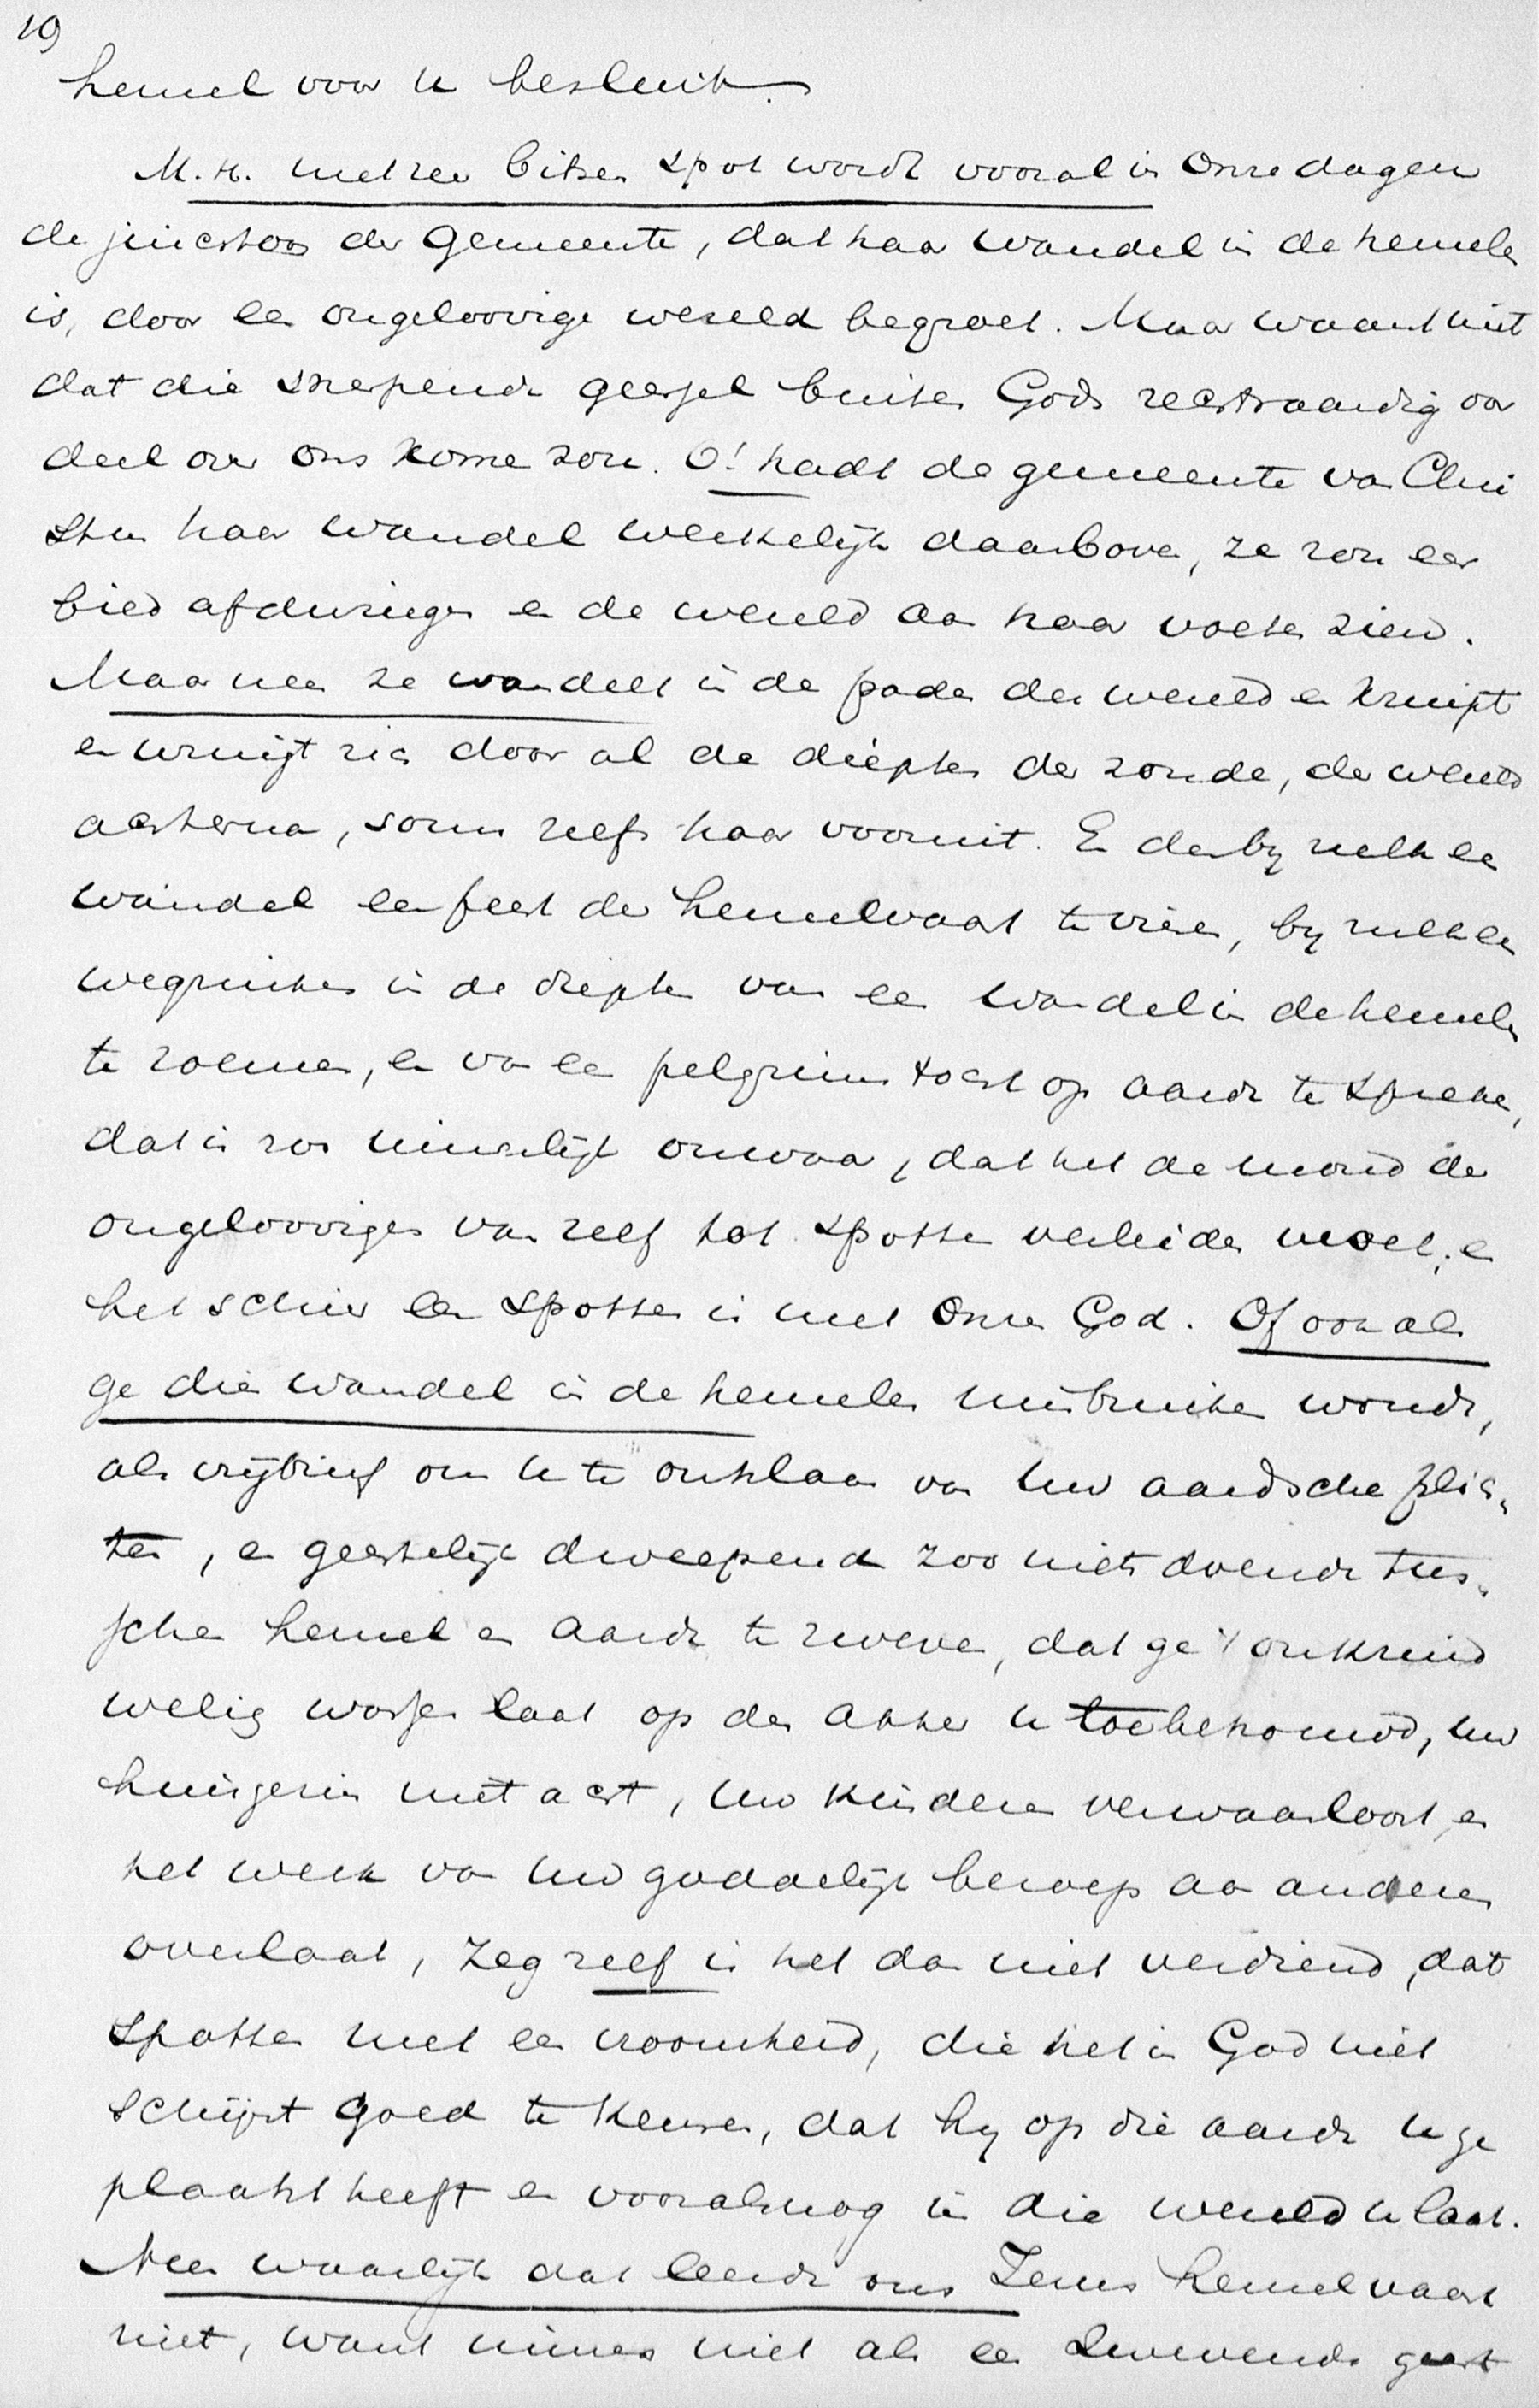 19
hemel voor u besluit.
M.H. met een bitse spot wordt vooral in onze dagen
de juichtoon der Gemeente, dat haar wandel in de hemelen
is, door een ongeloovige wereld begroet. Maar waant niet
dat die snerpende geesel buiten Gods rechtvaardig oor
deel over ons komen zou. O! hadt de gemeente van Chri
stus haar wandel werkelijk daarboven, ze zou eer
bied afdwingen en de wereld aan haar voeten zien.
Maar neen ze wandelt in de paden der wereld en kruipt
en wringt zich door al de diepten der zonde, de wereld
achterna, soms zelfs haar vooruit. En dan by zulk een
wandel een feest der hemelvaart te vieren, by zulk een
wegzinken in de diepten van een wandel in de hemelen
te roemen, en van een pelgrims tocht op aarde te spreken,
dat is zoo innerlijk onwaar, dat het de mond der
ongeloovigen van zelf tot spotten verleiden moet, en
het schier een spotten is met onzen God. Of ook als
ge die wandel in de hemelen misbruiken woudt,
als vrijbrief om u te ontslaan van uw aardsche plich,
ten, en geestelijk dweepend zoo niets doende tus,
schen hemel en aarde te zweven, dat ge 't onkruid
welig wassen laat op den akker u toebetrouwd, uw
huisgezin niet acht, uw kinderen verwaarloost, en
het werk van uw goddelijk beroep aan anderen
overlaat, zeg zelf is het dan niet verdiend, dat
spotten met een vroomheid, die het in God niet
schijnt goed te keuren, dat hy op die aarde u ge
plaatst heeft en vooralsnog in die wereld u laat.
Neen waarlijk dat leerde ons Jezus hemelvaart
niet, want immers niet als een zwevende geest